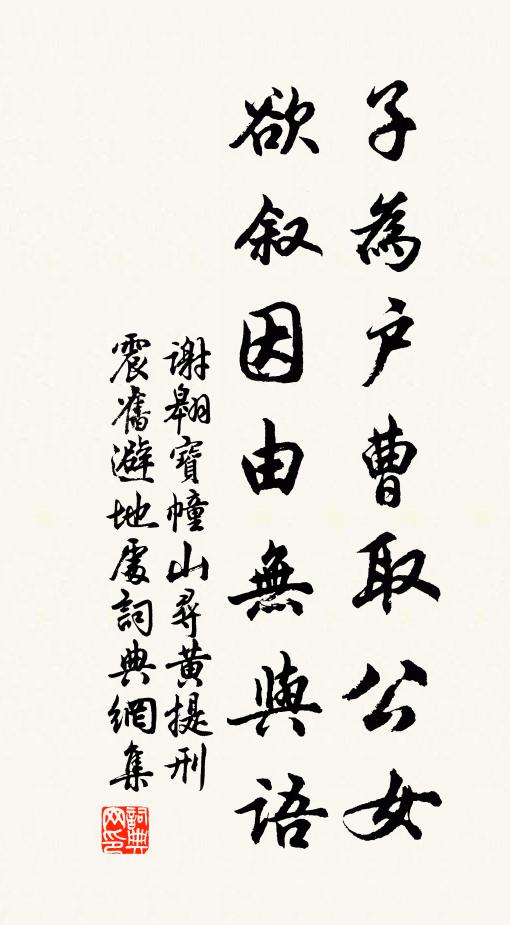 子為户曹取公女
欲叙因由無與語
謝翱寶幢山尋黄提刑
震舊避地處詞典網集
詞典網印